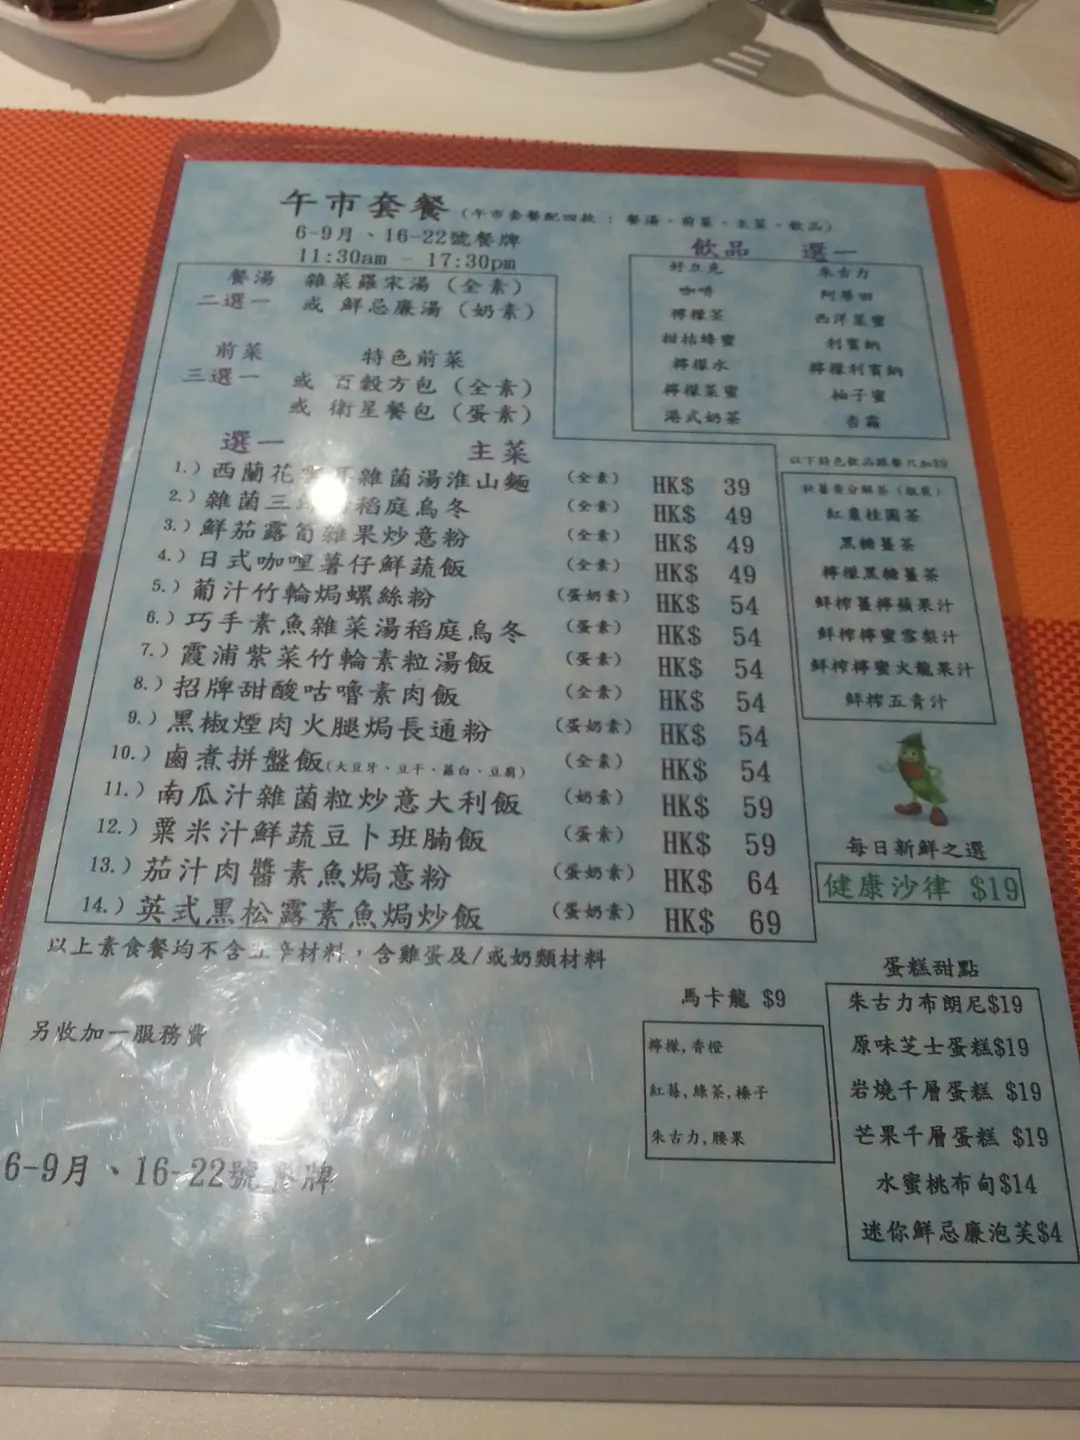 午市套餐(午市套餐配四款：餐湯、前菜、主菜、飲品)
6-9月、16-22號餐牌
11:30am – 17:30pm
餐湯 雜菜羅宋湯(全素)
二選一 或 鮮忌廉湯(奶素)
前菜 特色前菜
三選一 或 百穀方包(全素)
或 衛星餐包(蛋素)
飲品 選一
好力克 朱古力
咖啡 阿華田
檸檬茶 西洋菜蜜
柑桔蜂蜜 利賓納
檸檬水 檸檬利賓納
檸檬菜蜜 柚子蜜
港式奶茶 杏霜
選一 主菜
1.)西蘭花 耳雜菌湯淮山麵 (全素) HK$ 39
2.)雜菌三 稻庭烏冬 (全素) HK$ 49
3.)鮮茄露筍雜果炒意粉 (全素) HK$ 49
4.)日式咖哩薯仔鮮蔬飯 (全素) HK$ 49
5.)葡汁竹輪焗螺絲粉 (蛋奶素) HK$ 54
6.)巧手素魚雜菜湯稻庭烏冬 (蛋素) HK$ 54
7.)霞浦紫菜竹輪素粒湯飯 (蛋素) HK$ 54
8.)招牌甜酸咕嚕素肉飯 (全素) HK$ 54
9.)黑椒煙肉火腿焗長通粉 (蛋奶素) HK$ 54
10.)鹵煮拼盤飯(大豆牙、豆干、蘿白、豆腐) (全素) HK$ 54
11.)南瓜汁雜菌粒炒意大利飯 (奶素) HK$ 59
12.)粟米汁鮮蔬豆卜班腩飯 (蛋素) HK$ 59
13.)茄汁肉醬素魚焗意粉 (蛋奶素) HK$ 64
14.)英式黑松露素魚焗炒飯 (蛋奶素) HK$ 69
以上素食餐均不含五辛材料，含雞蛋及/或奶類材料
另收加一服務費
6-9月、16-22號餐牌
以下特色飲品跟餐只加$9
紅棗桂圓茶
黑糖薑茶
檸檬黑糖薑茶
鮮榨薑檸蘋果汁
鮮榨檸蜜雪梨汁
鮮榨檸蜜火龍果汁
鮮榨五青汁
每日新鮮之選
健康沙律 $19
馬卡龍 $9
檸檬,香橙
紅莓,綠茶,榛子
朱古力,腰果
蛋糕甜點
朱古力布朗尼$19
原味芝士蛋糕$19
岩燒千層蛋糕 $19
芒果千層蛋糕 $19
水蜜桃布甸$14
迷你鮮忌廉泡芙$4